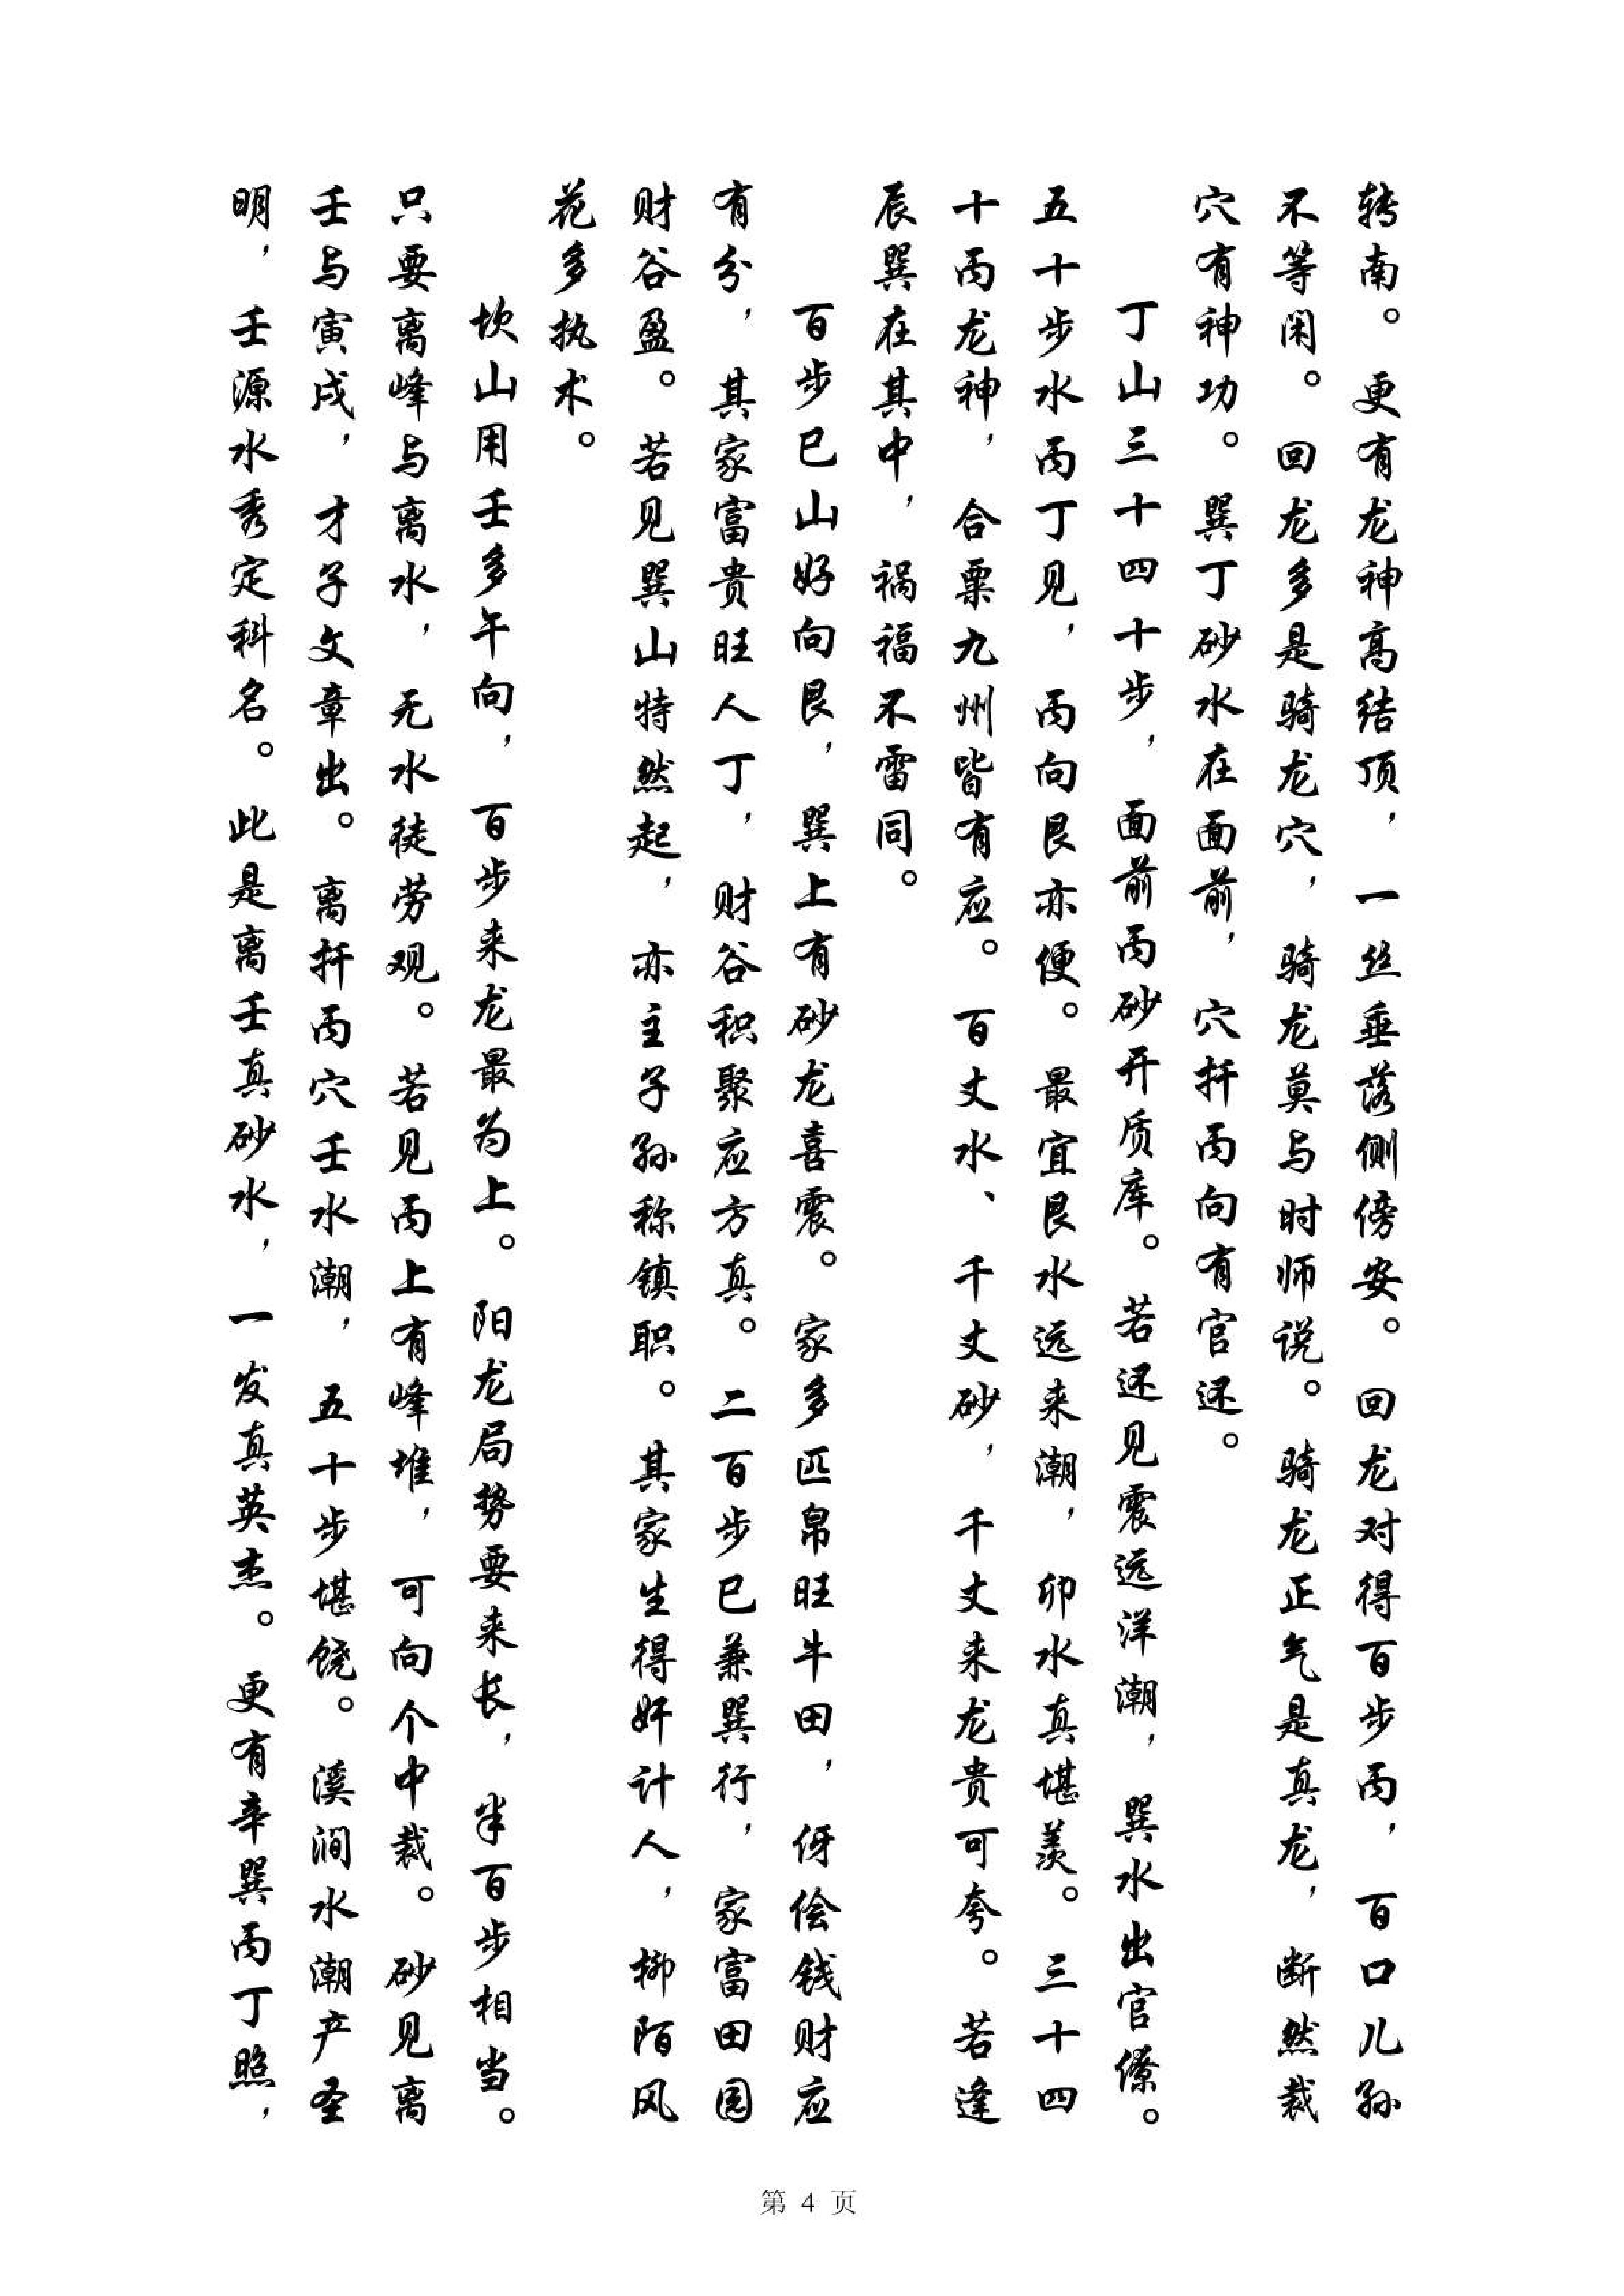 转南。更有龙神高结顶，一丝垂落侧傍安。回龙对得百步丙，百口儿孙
不等闲。回龙多是骑龙穴，骑龙莫与时师说。骑龙正气是真龙，断然裁
穴有神功。巽丁砂水在面前，穴扦丙向有官还。
丁山三十四十步，面前丙砂开质库。若还见震远洋潮，巽水出官僚。
五十步水丙丁见，丙向艮亦便。最宜艮水远来潮，卯水真堪羡。三十四
十丙龙神，合粟九州皆有应。百丈水、千丈砂，千丈来龙贵可夸。若逢
辰巽在其中，祸福不雷同。
百步巳山好向艮，巽上有砂龙喜震。家多匹帛旺牛田，伢侩钱财应
有分，其家富贵旺人丁，财谷积聚应方真。二百步巳兼巽行，家富田园
财谷盈。若见巽山特然起，亦主子孙称镇职。其家生得奸计人，柳陌风
花多执术。
坎山用壬多午向，百步来龙最为上。阳龙局势要来长，半百步相当。
只要离峰与离水，无水徒劳观。若见丙上有峰堆，可向个中裁。砂见离
壬与寅戌，才子文章出。离扦丙穴壬水潮，五十步堪饶。溪涧水潮产圣
明，壬源水秀定科名。此是离壬真砂水，一发真英杰。更有辛巽丙丁照，
第 4 页